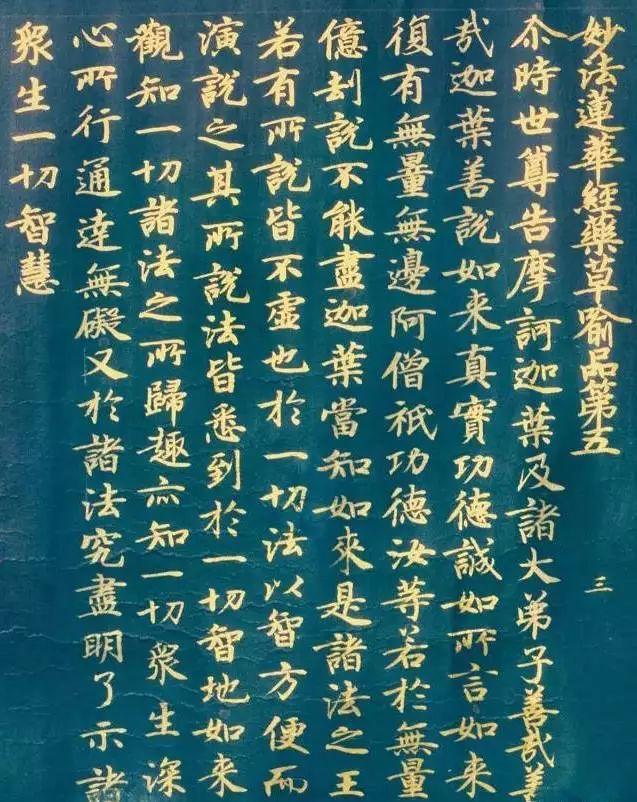 妙法蓮華經藥草喻品第五
三
尒時世尊告摩訶迦葉及諸大弟子善哉善
哉迦葉善說如来真實功德誠如所言如来
復有無量無邊阿僧祇功德汝等若於無量
億劫說不能盡迦葉當知如来是諸法之王
若有所說皆不虛也於一切法以智方便而
演說之其所說法皆悉到於一切智地如来
觀知一切諸法之所歸趣亦知一切衆生深
心所行通達無礙又於諸法究盡明了示諸
衆生一切智慧